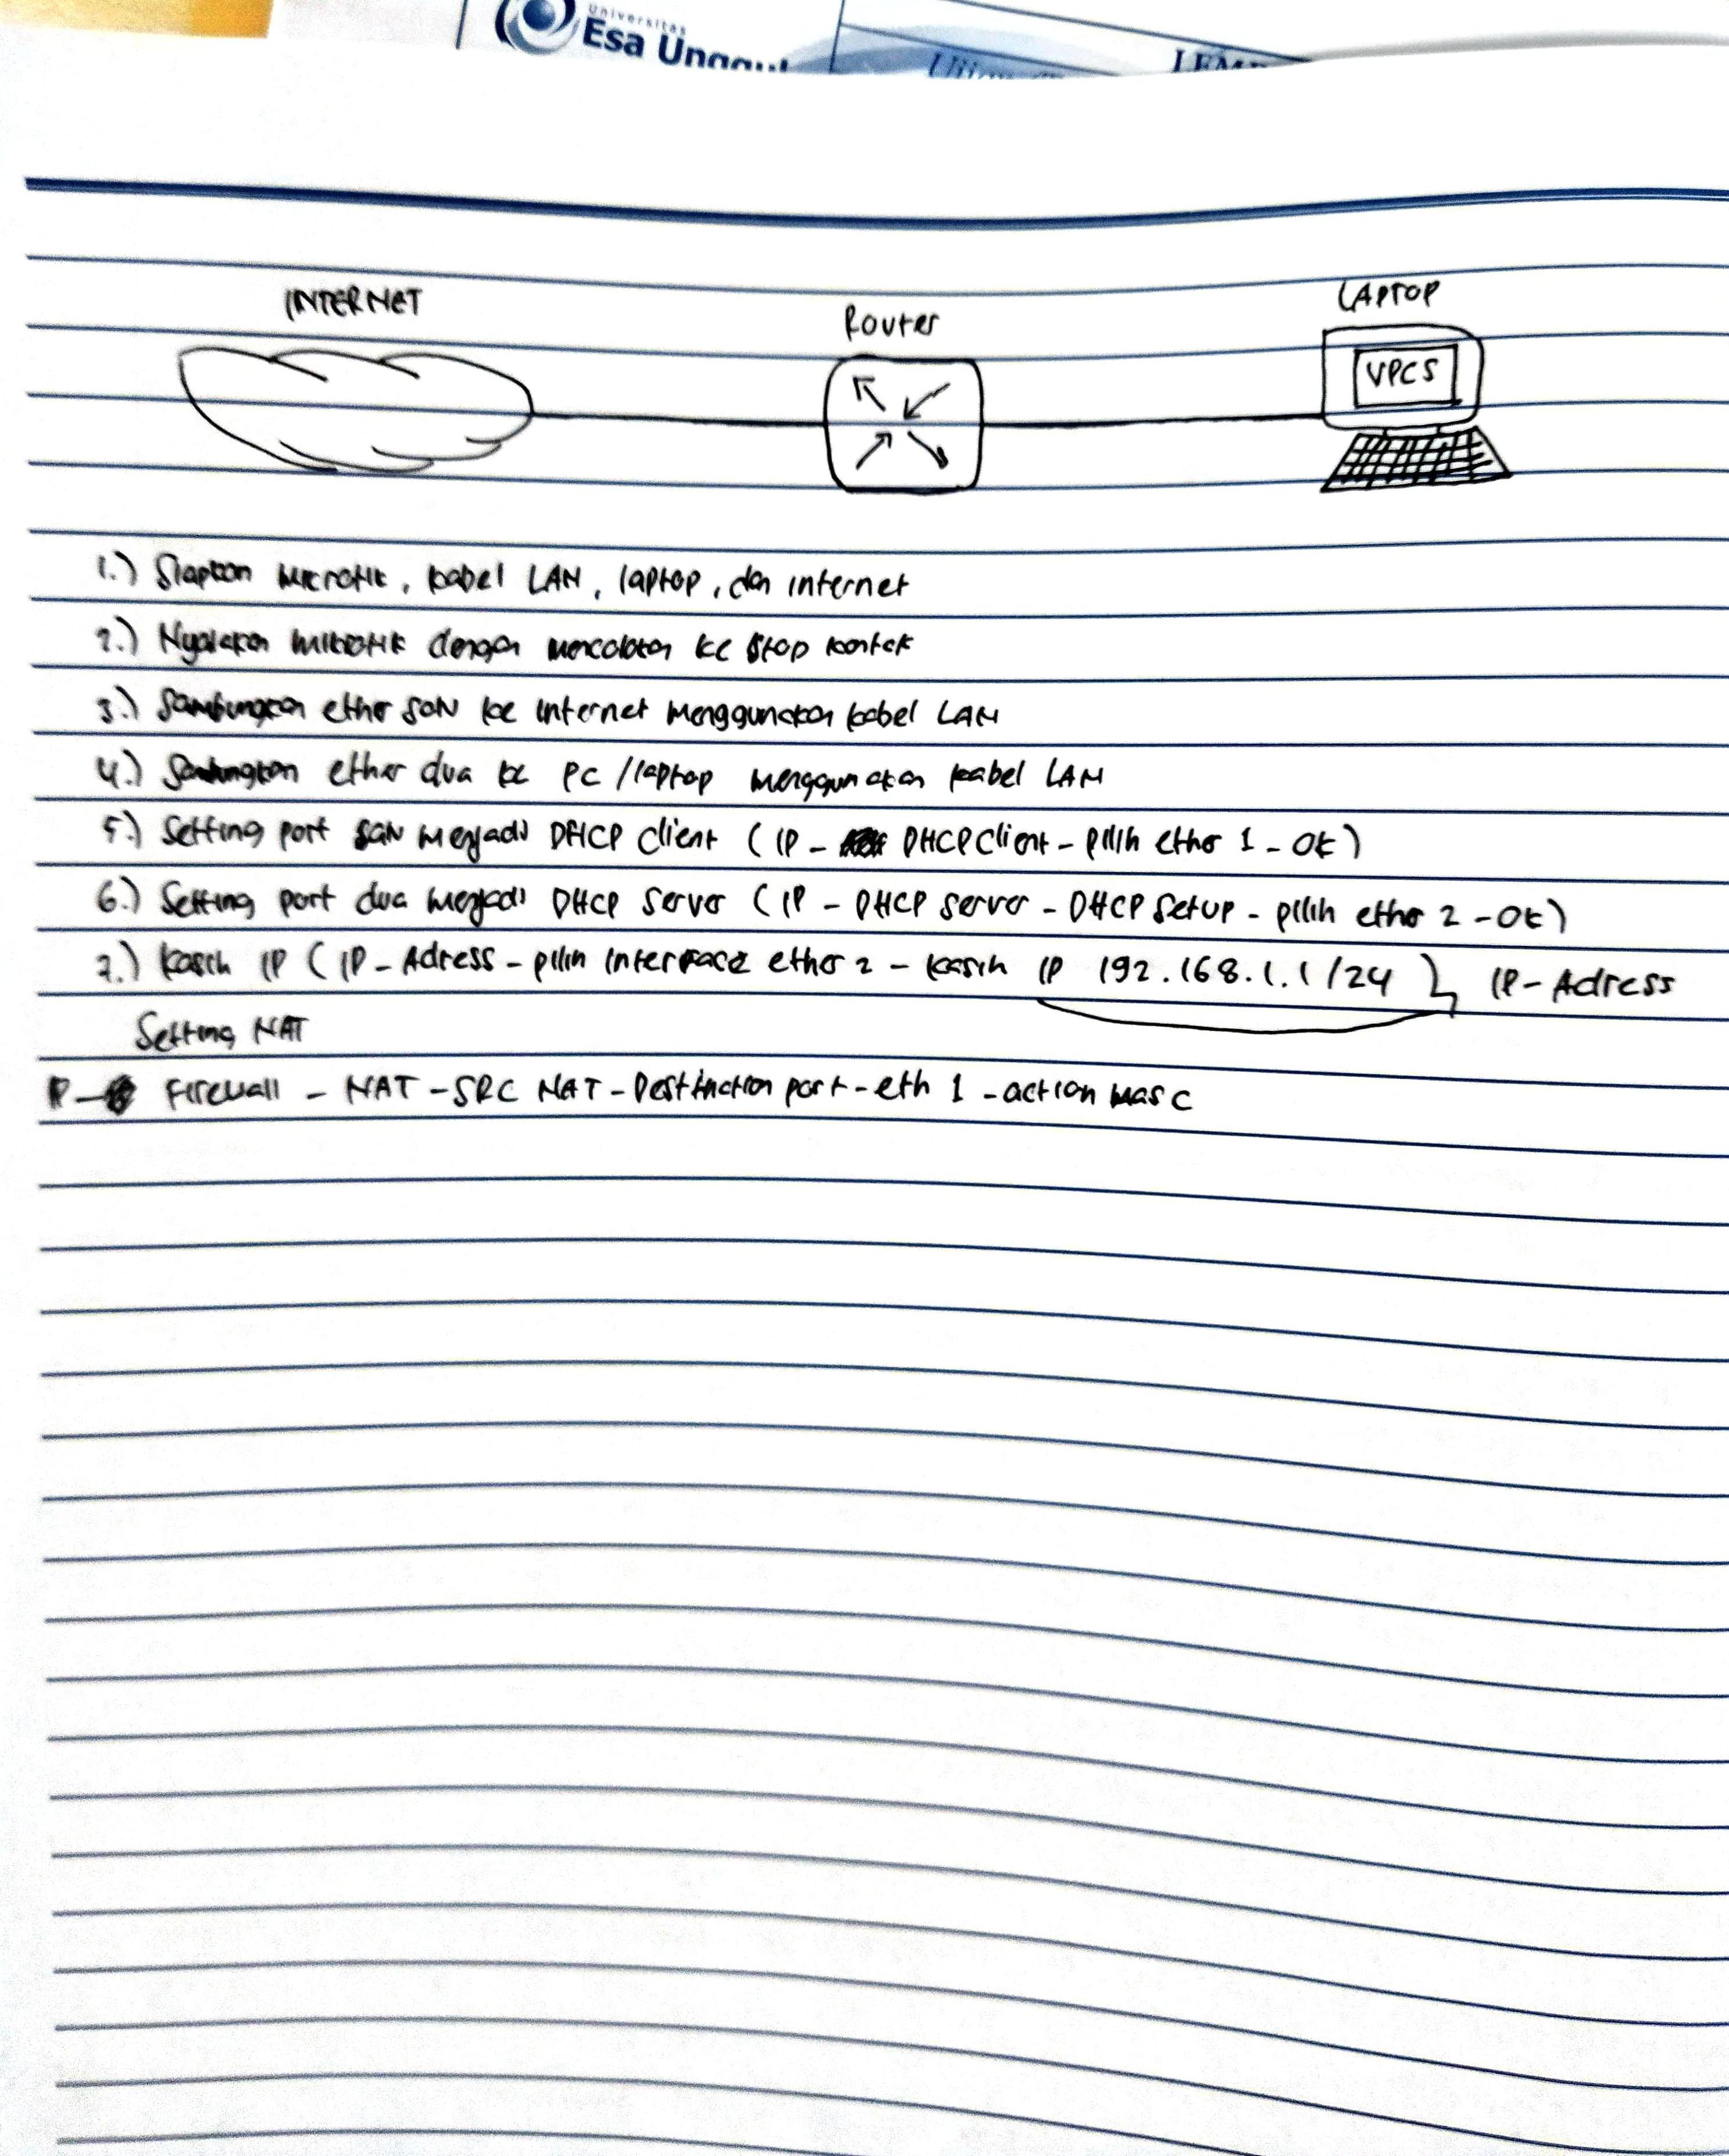 Universitas
Esa Unggul
INTERNET
Router
LAPTOP
VPCS
1.) Siapkan Mikrotik, kabel LAN, laptop, dan internet
2.) Nyalakan mikrotik dengan mencolokan ke stop kontak
3.) Sambungkan ether satu ke internet menggunakan kabel LAN
4.) Sambungkan ether dua ke PC/laptop menggunakan kabel LAN
5.) Setting port satu menjadi DHCP client (IP - DHCP Client - pilih ether 1 - OK)
6.) Setting port dua menjadi DHCP Server (IP - DHCP server - DHCP Setup - pilih ether 2 - OK)
7.) Kasih IP (IP - Adress - pilih interface ether 2 - kasih IP 192.168.1.1/24 IP - Adress
Setting NAT
IP - Firewall - NAT - SRC NAT - Destination port - eth 1 - action masc